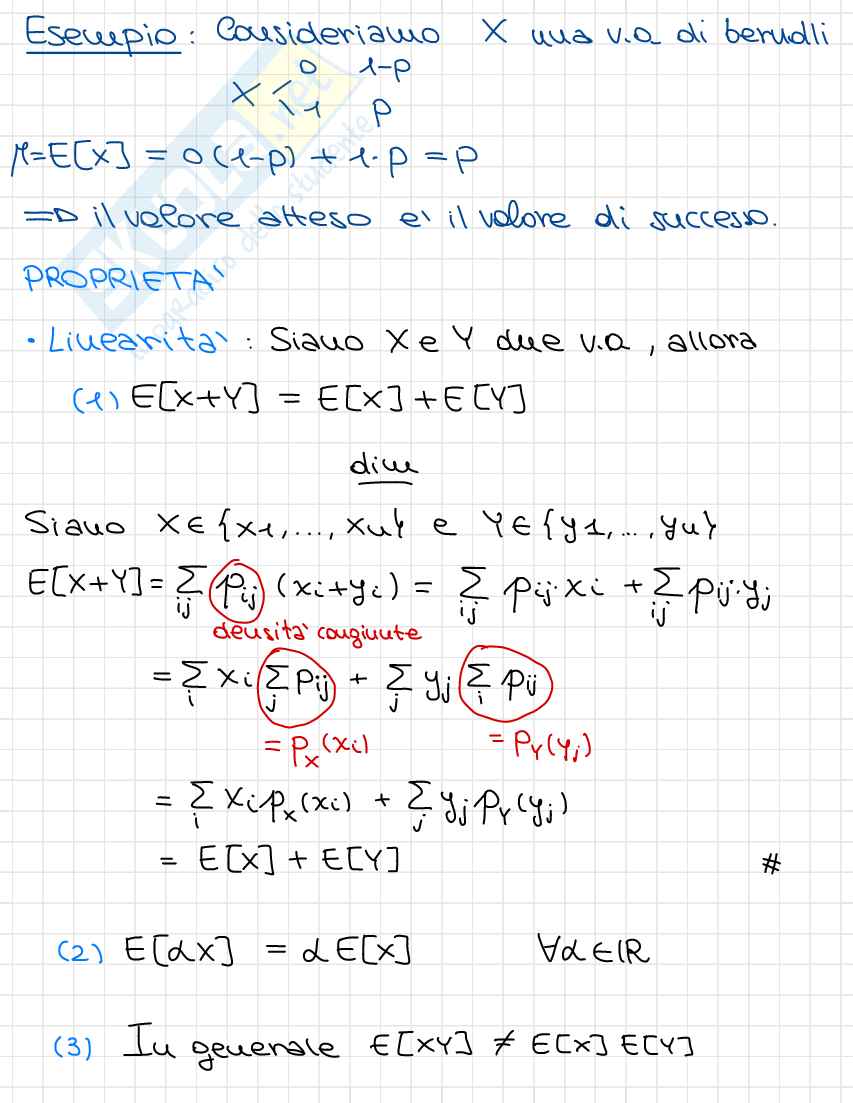 Esempio: Consideriamo X una v.a di bernulli
X 0 1-p
1 p
μ=E[X] = 0(1-p) + 1·p = p
=D il valore atteso e' il valore di successo.
PROPRIETA'
• Linearita': Siano X e Y due v.a, allora
(1) E[X+Y] = E[X]+E[Y]
dim
Siano X∈{x1,...,xn} e Y∈{y1,...,yn}
E[X+Y]=∑ij pij (xi+yi) = ∑ij pij·xi + ∑ij pij·yj
densita' congiunte
= ∑i xi ∑j pij + ∑j yj ∑i pij
= px(xi) = pY(yj)
= ∑i xi px(xi) + ∑j yj pY(yj)
= E[X] + E[Y] #
(2) E[αX] = αE[X] ∀α∈ℝ
(3) In generale E[XY] ≠ E[X]E[Y]